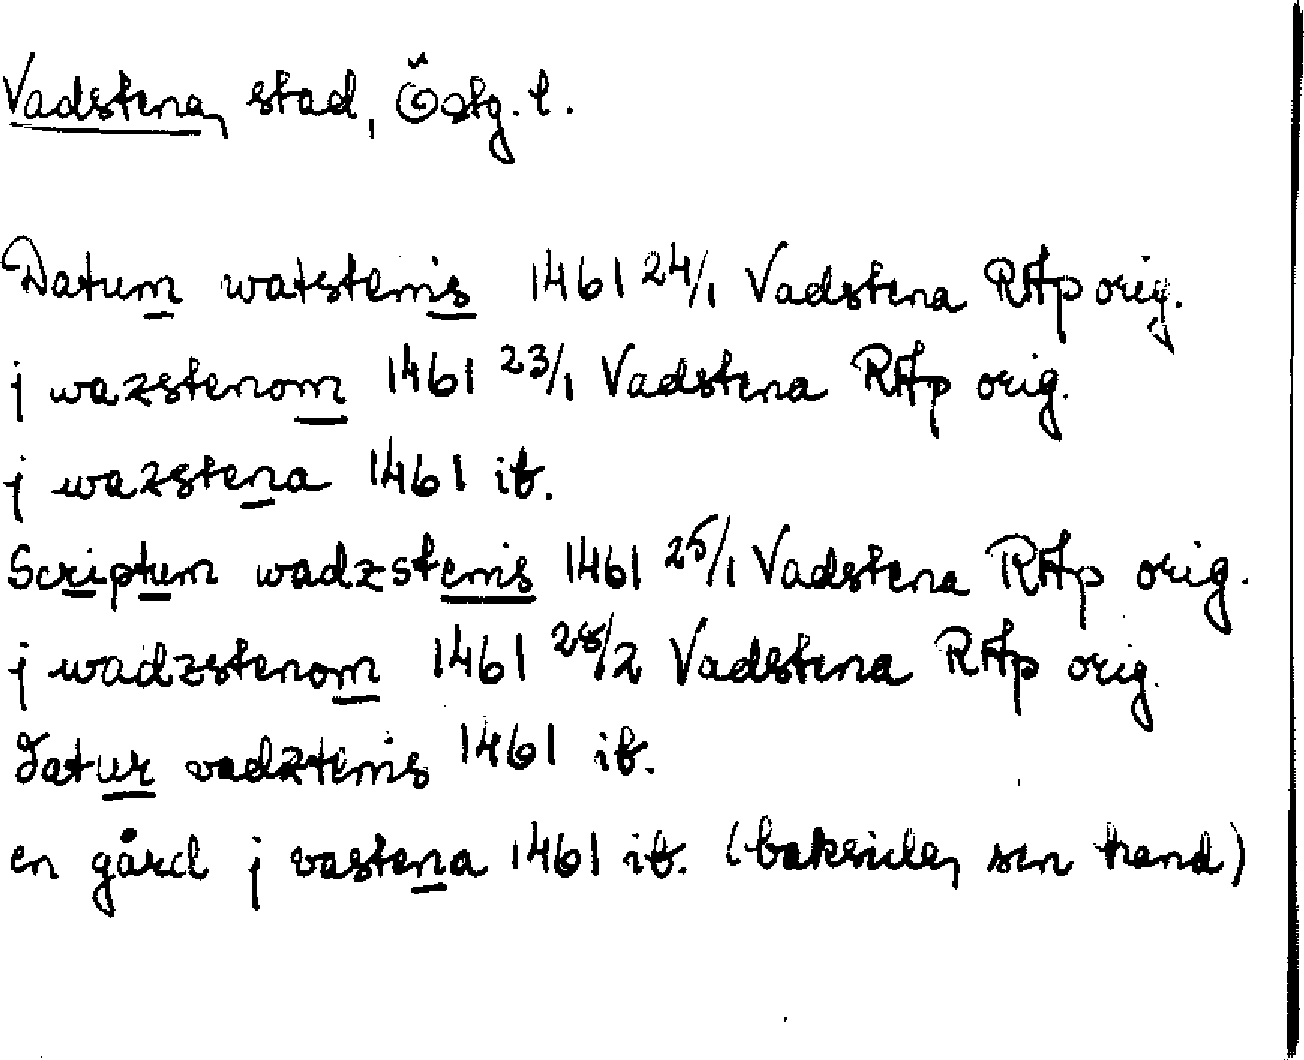 Vadstena, stad, Östg. l.
Datum watstenis 1461 24/1 Vadstena RAp orig.
j wazstenom 1461 23/1 Vadstena RAp orig.
j wazstena 1461 ib.
Scriptum wadzstenis 1461 25/1 Vadstena RAp orig.
j wadzstenom 1461 28/2 Vadstena RAp orig.
Datur vadztenis 1461 ib.
en gård j vastena 1461 ib. (baksida, sen hand)